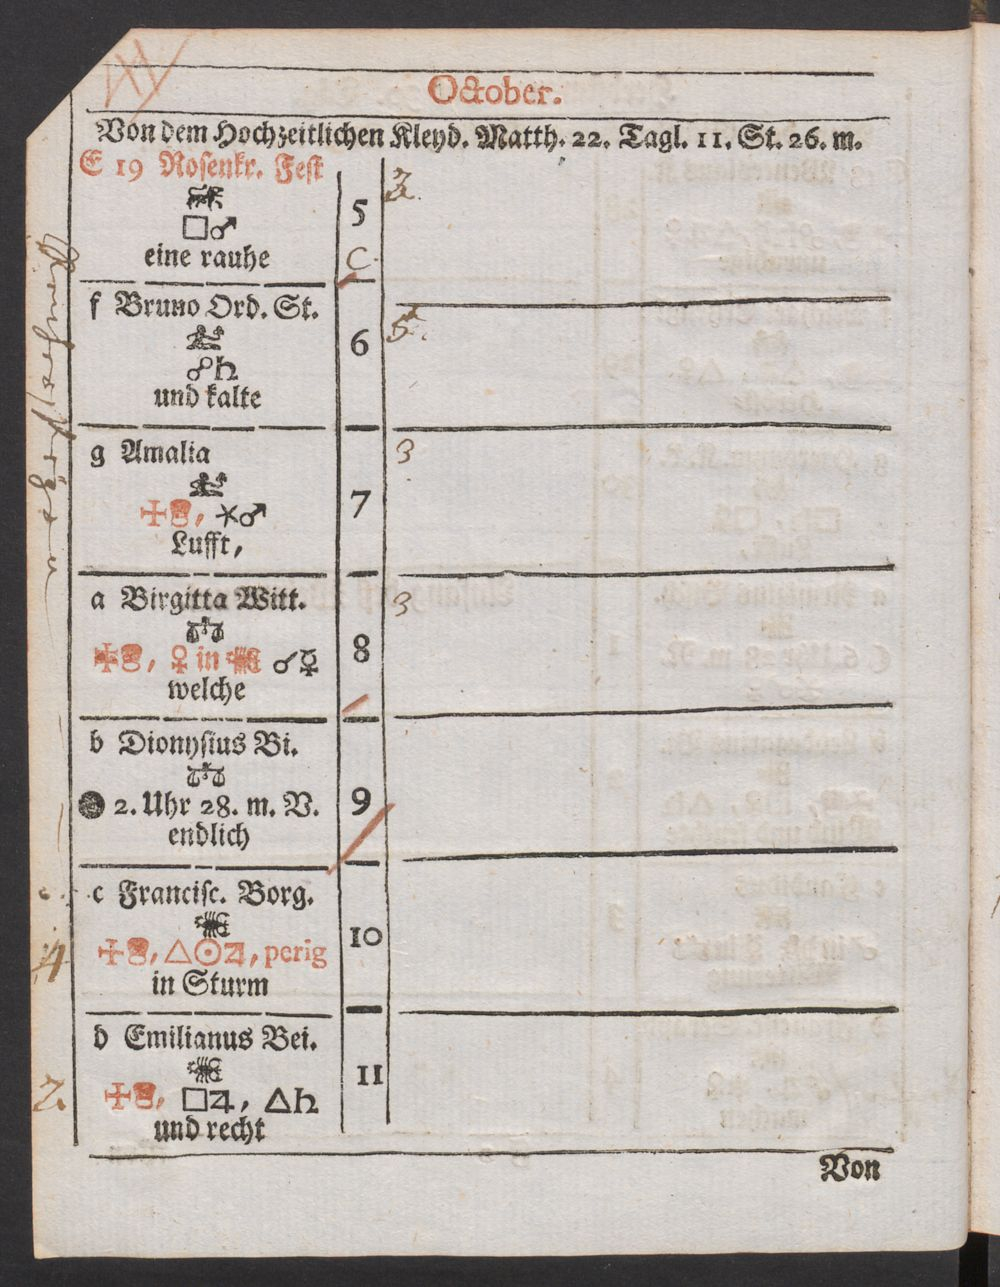 October.
Von dem Hochzeitlichen Kleyd. Matth. 22. Tagl. 11. St. 26. m.
E 19 Rosenkr. Fest
□♂
eine rauhe
5
C
2
f Bruno Ord. St.
☍♄
und kalte
6
5
g Amalia
✠, ⚹♂
Lufft,
7
3
a Birgitta Witt.
✠, ♀ in ♏ ☌☿
welche
8
3
b Dionysius Bi.
2. Uhr 28. m. V.
endlich
9
c Francisc. Borg.
✠, △☉♃, perig
in Sturm
10
4
d Emilianus Bei.
✠, □♃, △♄
und recht
11
2.
Von